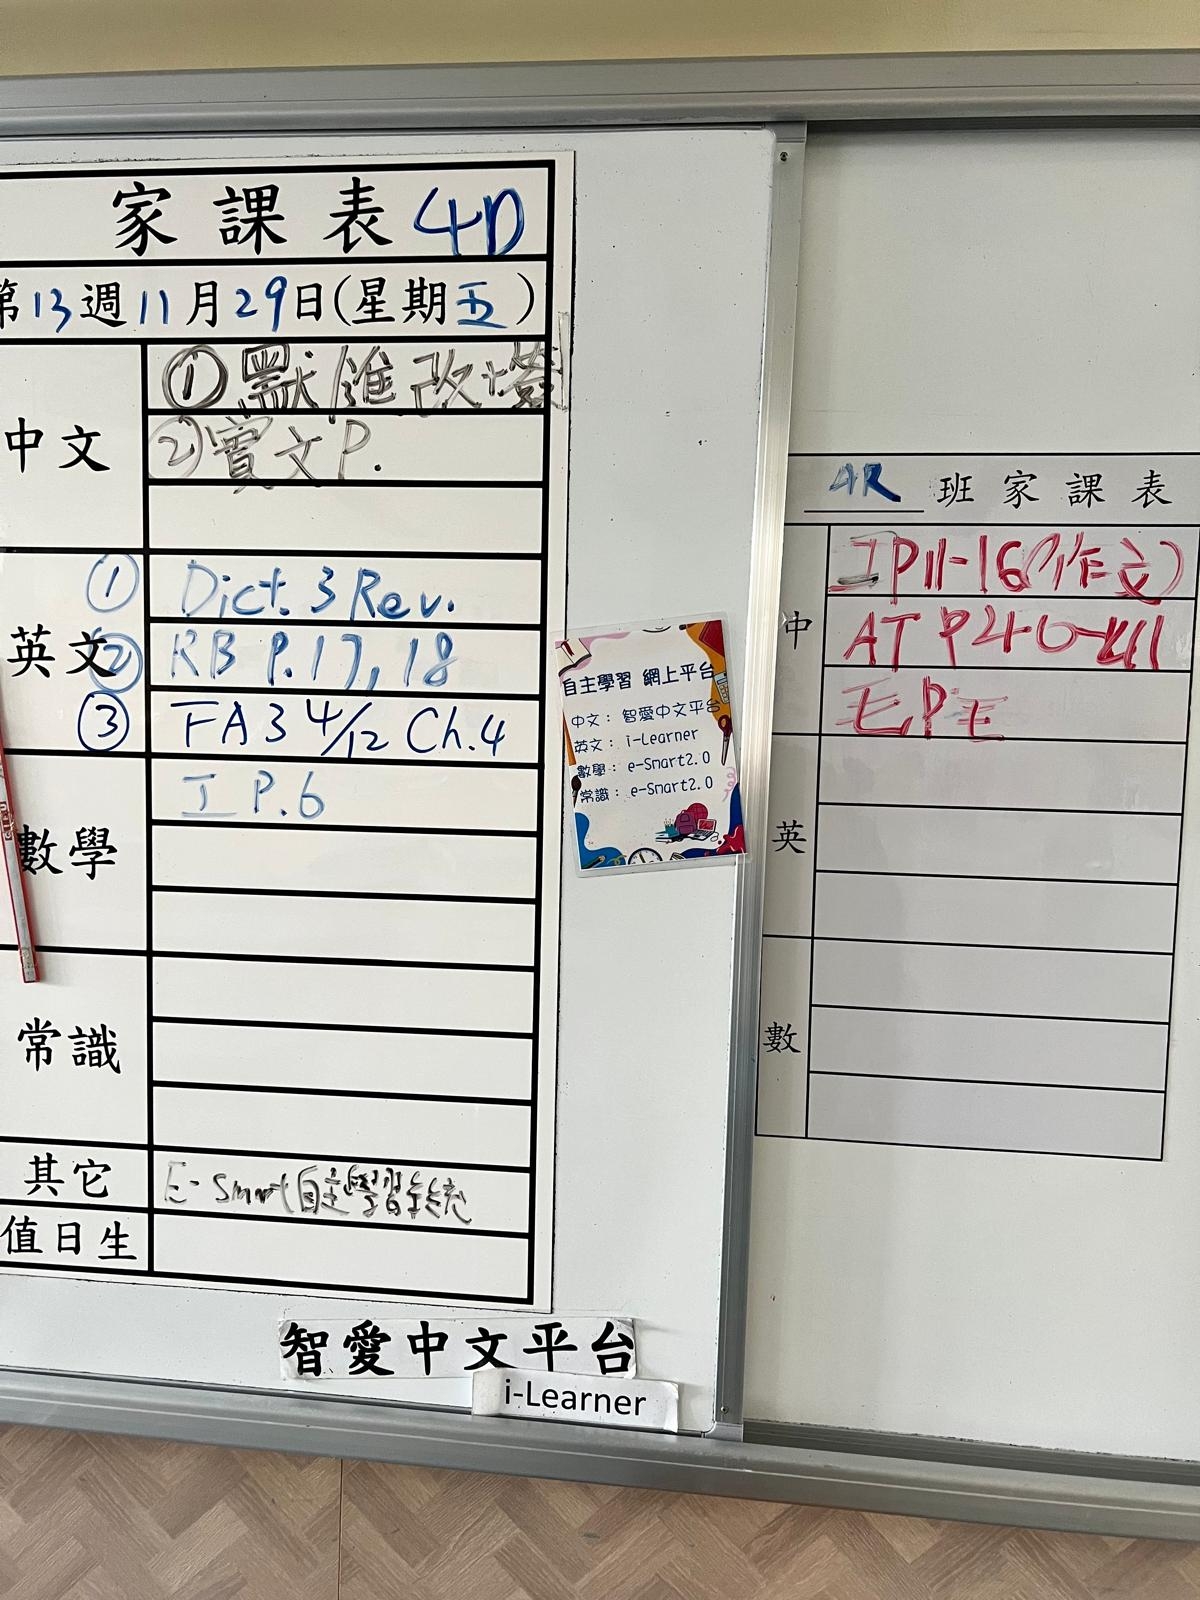 家課表 4D
第13週11月29日(星期五)
中文
① 默進改
② 實文P.
英文
① Dict. 3 Rev.
② RB P.17, 18
③ FA3 4/12 Ch.4
數學
工 P.6
常識
其它
E-Smart自主學習系統
值日生
智愛中文平台
i-Learner
自主學習 網上平台
中文： 智愛中文平台
英文： i-Learner
數學： e-Smart2.0
常識： e-Smart2.0
4R 班家課表
中
工P11-16(作文)
AT P40-41
毛P毛
英
數